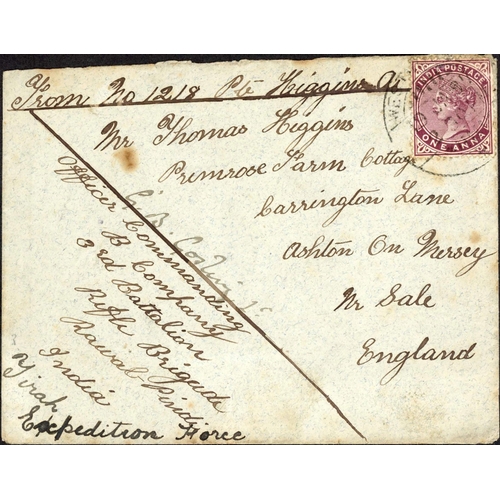 From No 1218 Pte Higgins
INDIA POSTAGE
ONE ANNA
Mr Thomas Higgins
Primrose Farm Cottage
Carrington Lane
Ashton On Mersey
Nr Sale
England
Officer Commanding
B Company
3rd Battalion
Rifle Brigade
Rawal-Pindi
India
Tirah
Expedition Force